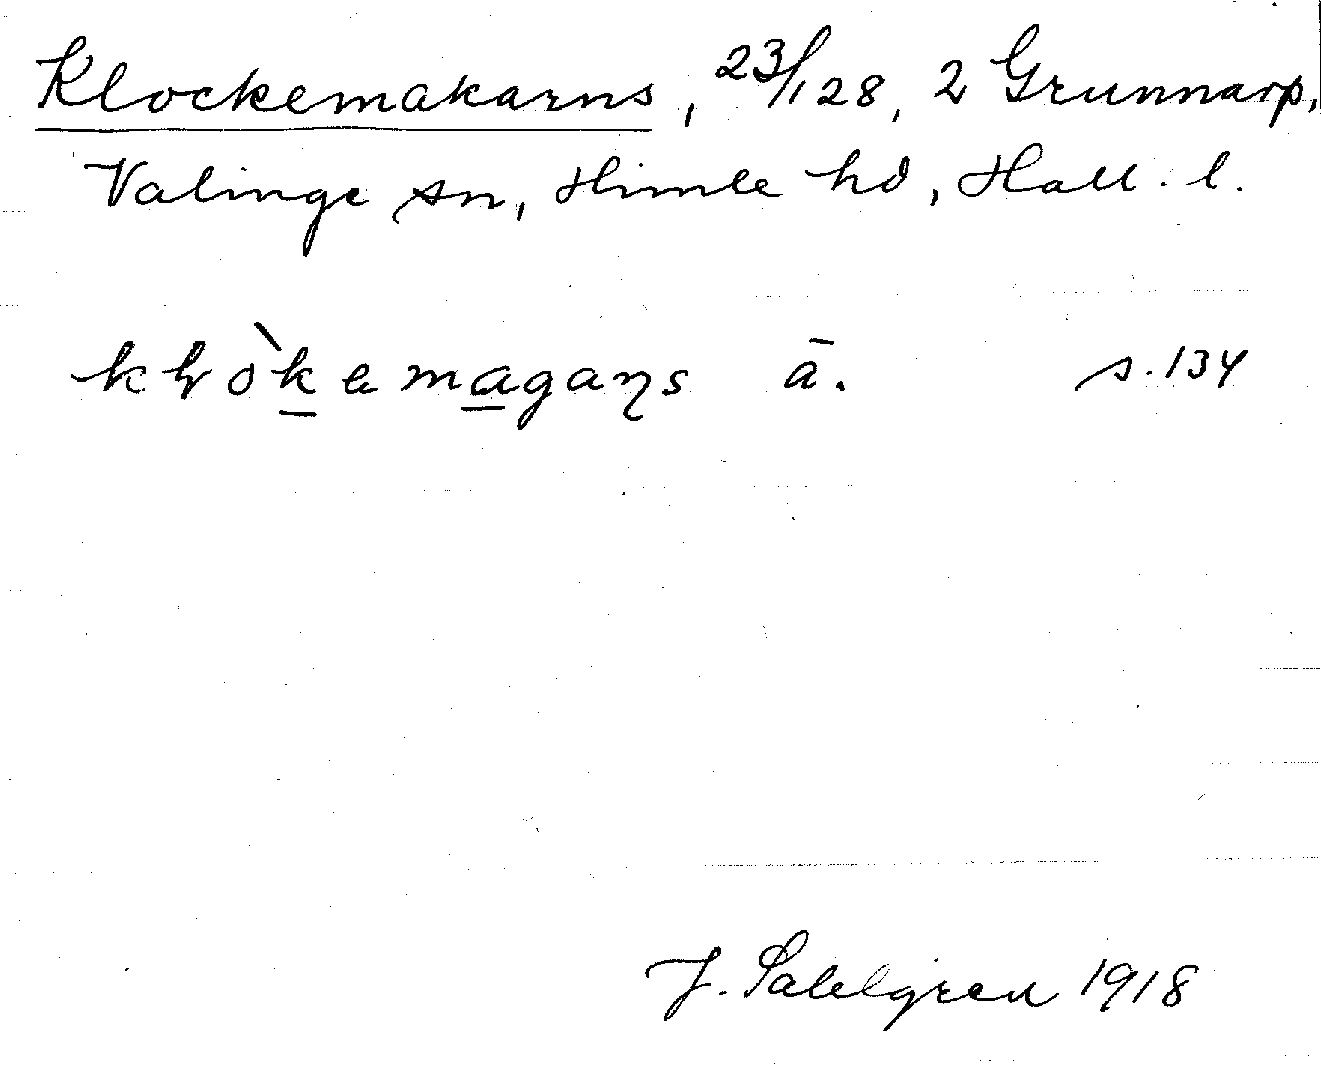 Klockemakarns, 23/128, 2 Grunnarp,
Valinge sn, Himle hd, Hall. l.
kɫòk̲ema̲gaɳs ā. s. 134
J. Sahlgren 1918